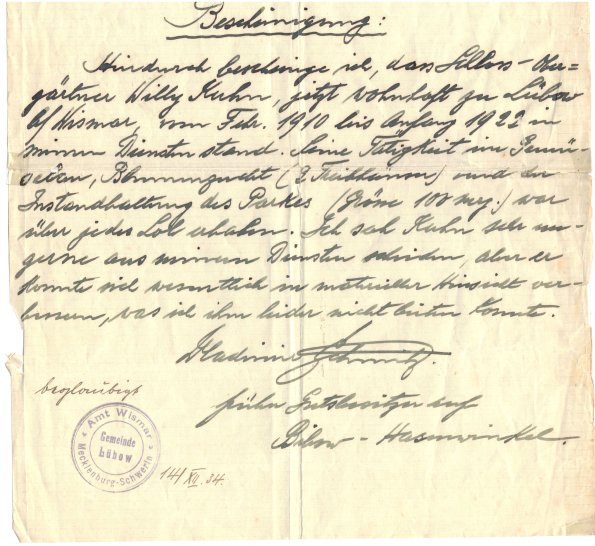 Bescheinigung:
Hierdurch bescheinige ich, dass Schloss-Ober=
gärtner Willy Kuhn, jetzt wohnhaft zu Lübow
b/Wismar, vom Febr. 1910 bis Anfang 1922 in
meinen Diensten stand. Seine Tätigkeit im Gemü-
sebau, Blumenzucht (2 Treibhäuser) und der
Instandhaltung des Parkes (Grösse 100 mrg.) war
über jedes Lob erhaben. Ich sah Kuhn sehr un-
gerne aus meinen Diensten scheiden, aber er
konnte sich wesentlich in materieller Hinsicht ver-
bessern, was ich ihm leider nicht bieten konnte.
Wladimir Schmitz.
früher Gutsbesitzer auf
Bibow - Hasenwinkel.
beglaubigt
Amt Wismar
Gemeinde
Lübow
Mecklenburg-Schwerin
14/XII.34.